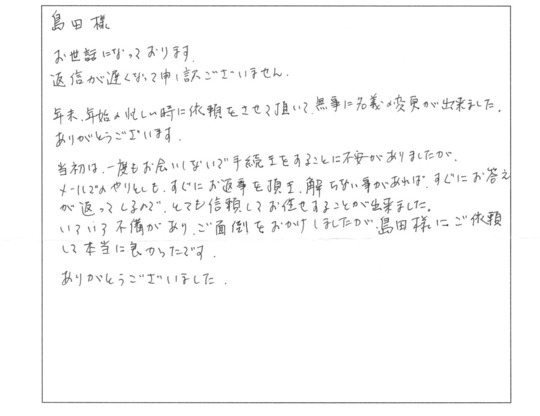 島田様
お世話になっております。
返信が遅くなって申し訳ございません。
年末、年始の忙しい時に依頼をさせて頂いて、無事に名義の変更が出来ました。
ありがとうございます。
当初は、一度もお会いしないで手続きをすることに不安がありましたが、
メールでのやりとりも、すぐにお返事を頂き、解らない事があれば、すぐにお答え
が返ってくるので、とても信頼してお任せすることが出来ました。
いろいろ不備があり、ご面倒をおかけしましたが、島田様にご依頼
して本当に良かったです。
ありがとうございました。